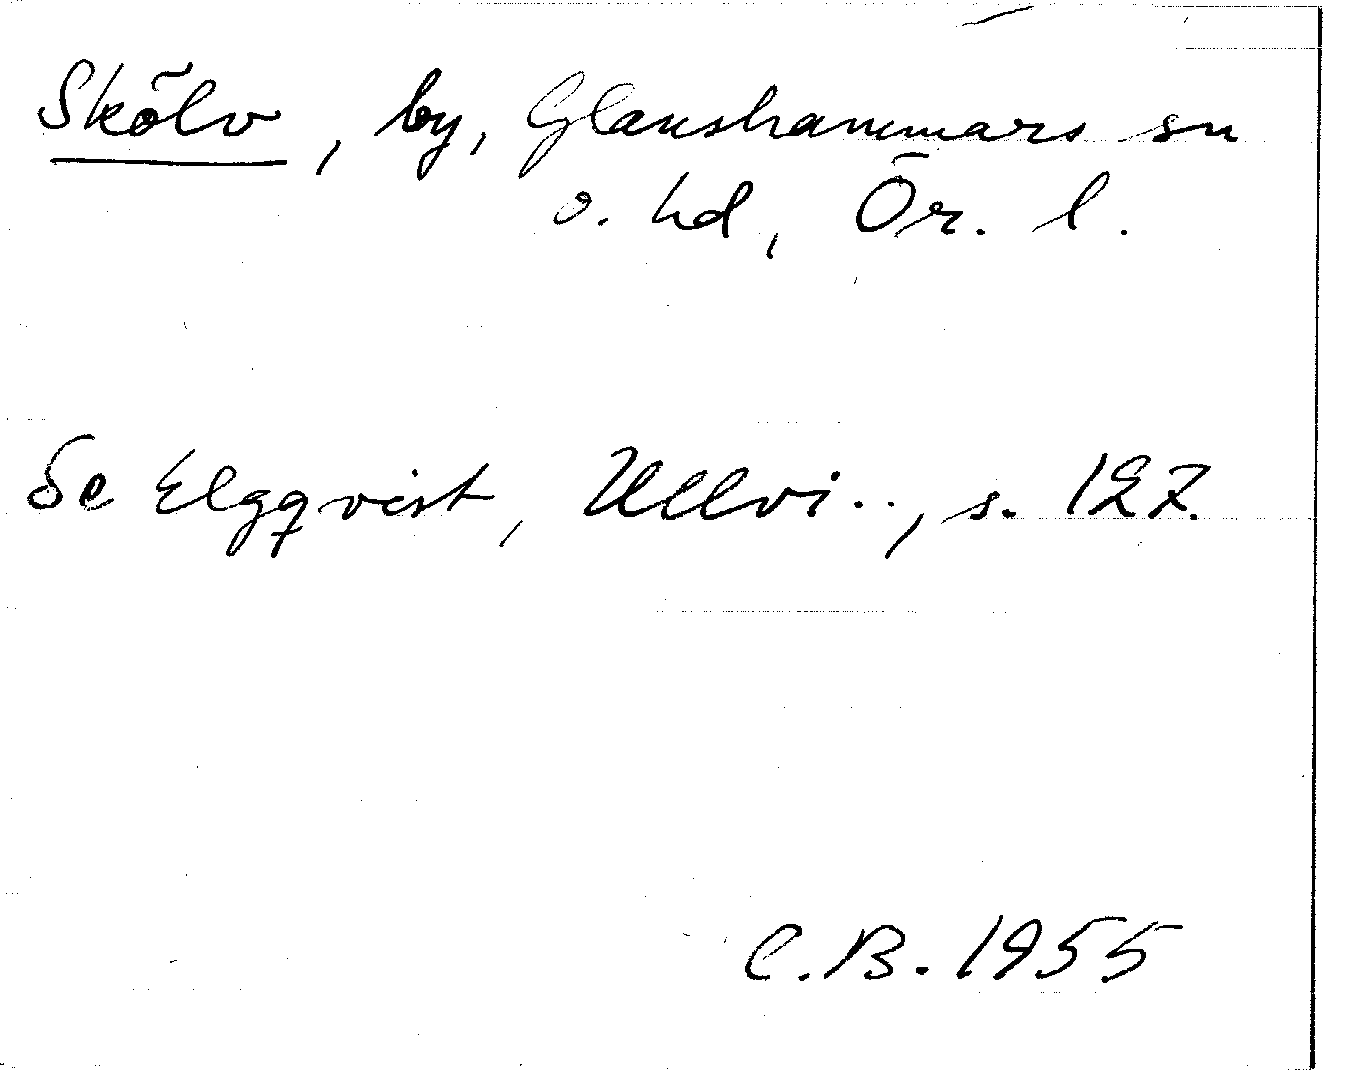 Skölv, by, Glanshammars sn
o. hd, Ör. l.
Se Elgqvist, Ullvi.., s. 127.
C.B. 1955